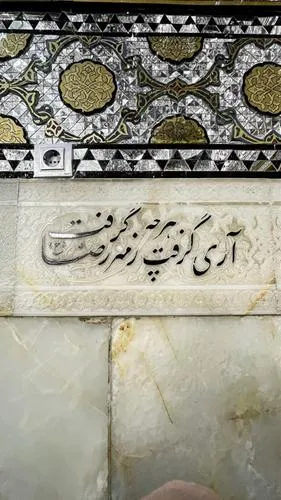 آری گرفت هرچه گرفت ز مهر رضا گرفت